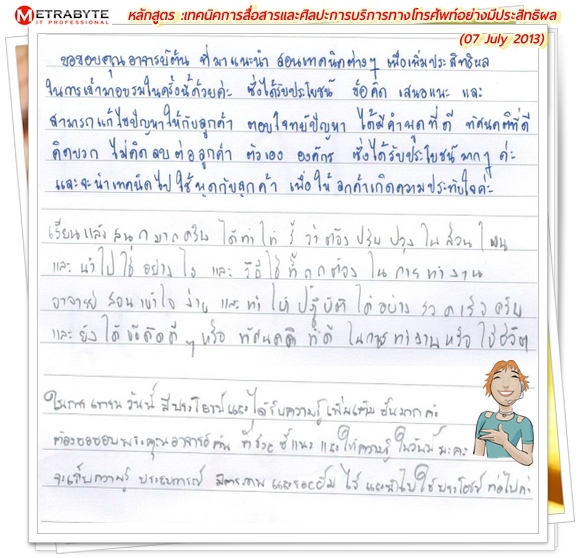 METRABYTE
IT PROFESSIONAL
หลักสูตร :เทคนิคการสื่อสารและศิลปะการบริการทางโทรศัพท์อย่างมีประสิทธิผล
(07 July 2013)
ขอขอบคุณ อาจารย์ต้น ที่มาแนะนำ สอนเทคนิคต่างๆ เพื่อเพิ่มประสิทธิผล
ในการเข้ามาอบรมในครั้งนี้ด้วยค่ะ ซึ่งได้รับประโยชน์ ข้อคิด เสนอแนะ และ
สามารถแก้ไขปัญหาให้กับลูกค้า ตอบโจทย์ปัญหา ได้มีคำพูดที่ดี ทัศนคติที่ดี
คิดบวก ไม่คิดลบต่อลูกค้า ตัวเอง องค์กร ซึ่งได้รับประโยชน์มากๆ ค่ะ
และจะนำเทคนิคไปใช้พูดกับลูกค้า เพื่อให้ลูกค้าเกิดความประทับใจค่ะ
เรียนแล้วสนุกมากครับ ได้ทำให้รู้ว่าต้องปรับปรุงในส่วนไหน
และนำไปใช้อย่างไร และวิธีใช้ที่ถูกต้องในการทำงาน
อาจารย์สอนเข้าใจง่าย และทำให้ปฏิบัติได้อย่างรวดเร็วครับ
และยังได้ข้อคิดดีๆ หรือ ทัศนคติที่ดี ในการทำงานหรือใช้ชีวิต
ในการ วันนี้ มีประโยชน์และได้รับความรู้เพิ่มเติมขึ้นมากค่ะ
ต้องขอขอบพระคุณอาจารย์ต้น ที่ช่วยชี้แนะ และให้ความรู้ในวันนี้นะคะ
จะเก็บความรู้ ประสบการณ์ มิตรภาพ และรอยยิ้มไว้ และนำไปใช้ประโยชน์ต่อไปค่ะ